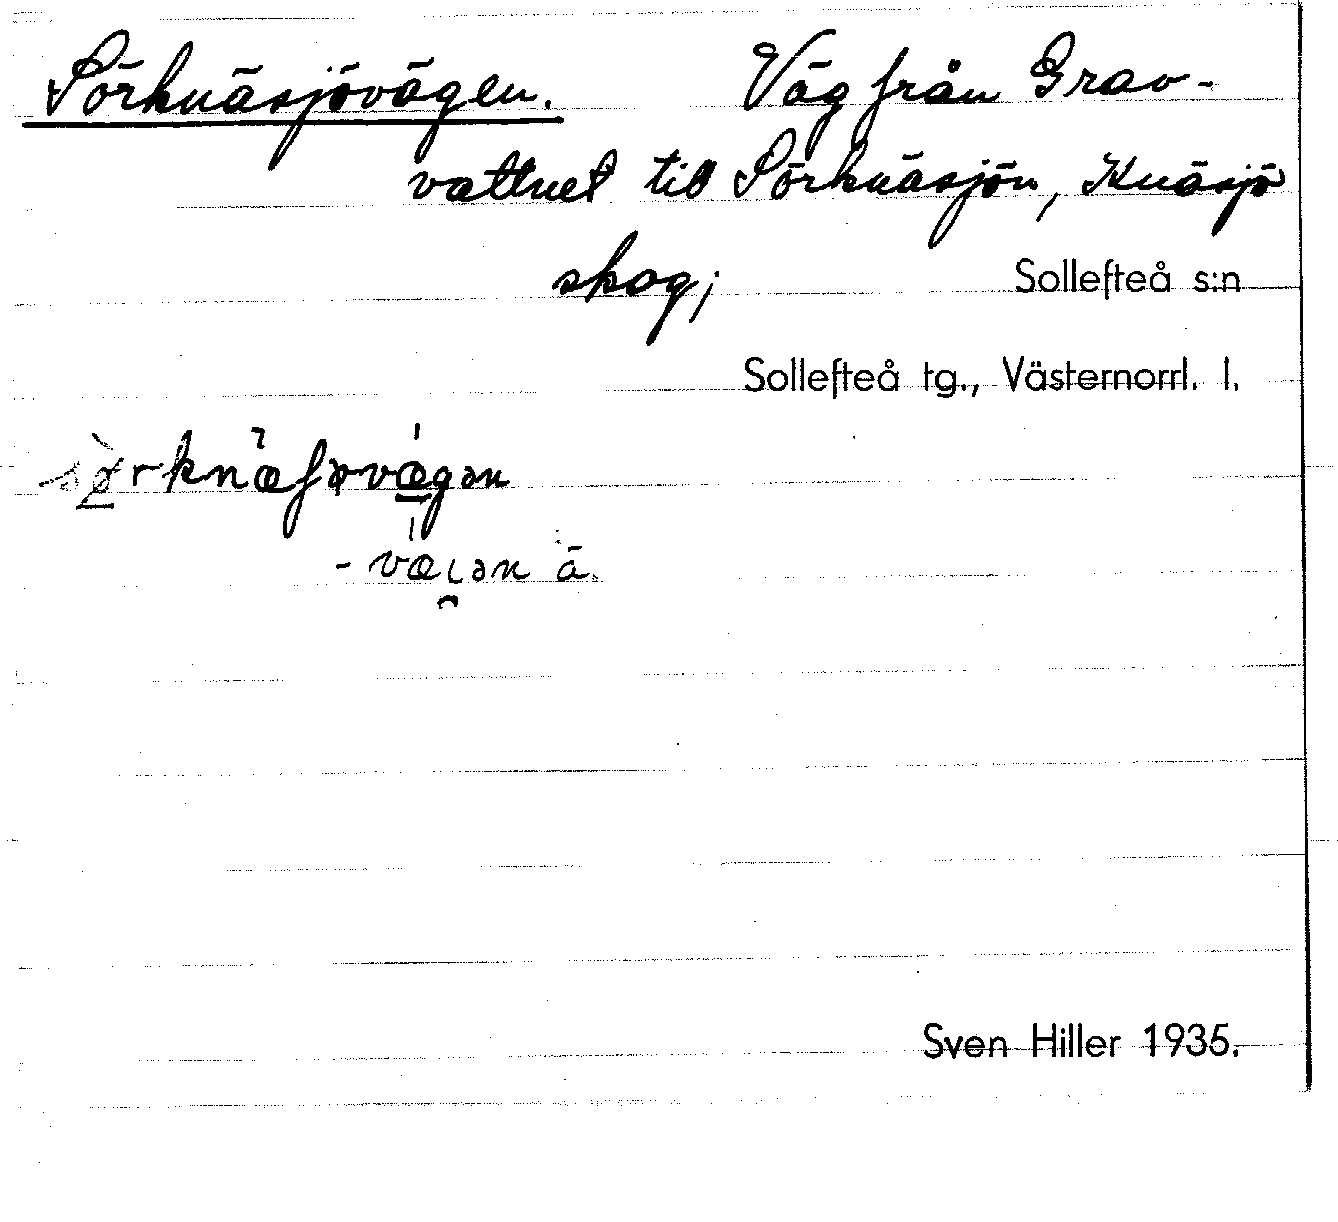 Sörknäsjövägen. Väg från Grav-
vattnet till Sörknäsjön, Knäsjö
skog; Sollefteå s:n
Sollefteå tg., Västernorrl. l.
sø̀rknæʃøvǽgən
- væi̯ən ä.
Sven Hiller 1935.